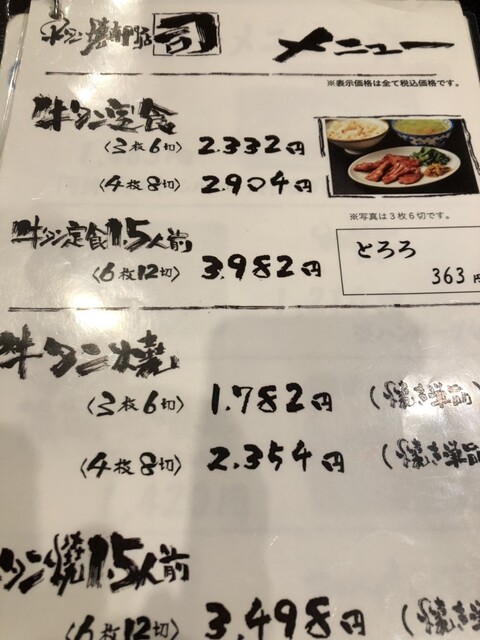 牛タン焼専門店 司
メニュー
※表示価格は全て税込価格です。
牛タン定食
〈3枚6切〉 2.332円
〈4枚8切〉 2.904円
※写真は3枚6切です。
牛タン定食1.5人前
〈6枚12切〉 3.982円
とろろ
363円
牛タン焼
〈3枚6切〉 1.782円 (焼き単品)
〈4枚8切〉 2.354円 (焼き単品
タン焼1.5人前
〈6枚12切〉 3.498円 (焼き